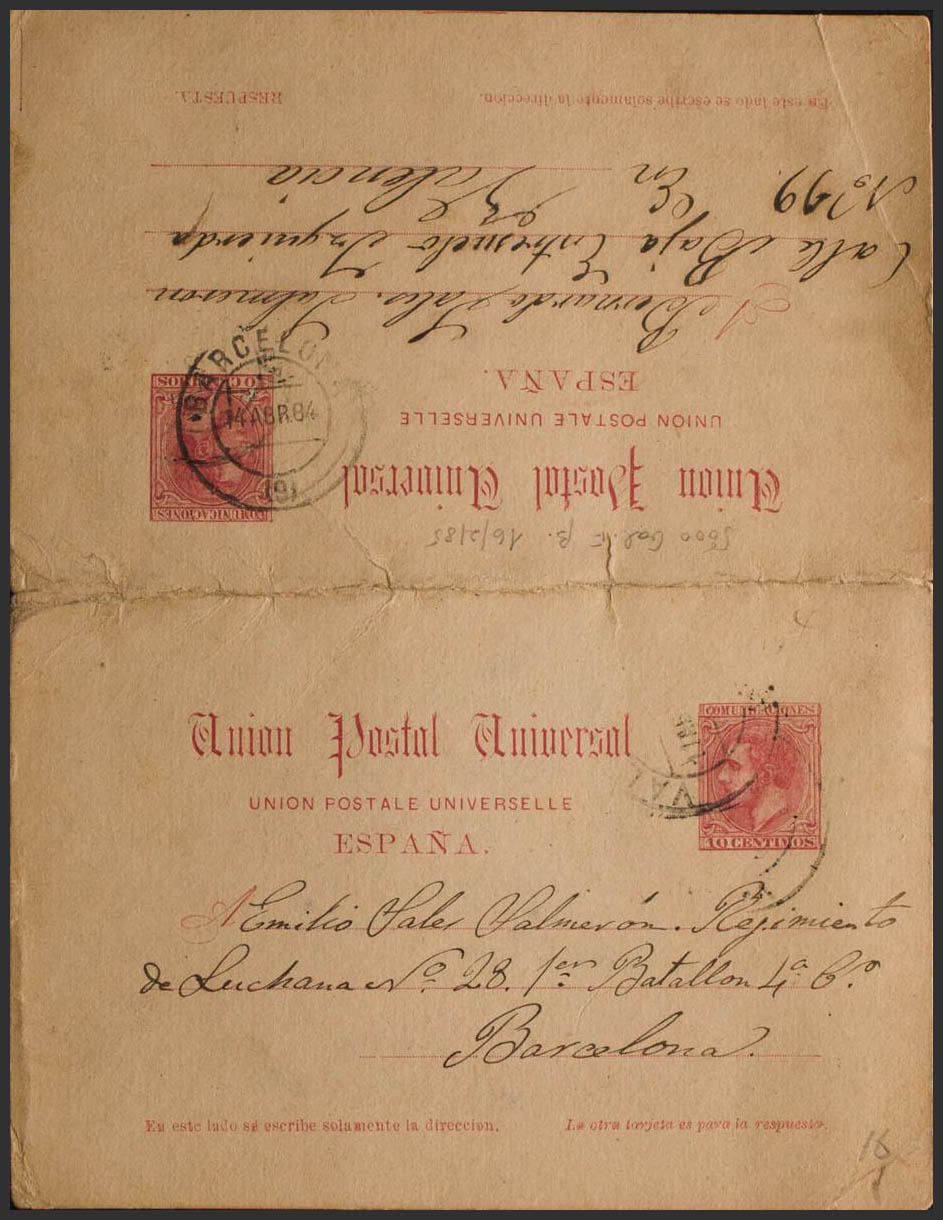 RESPUESTA.
En este lado se escribe solamente la direccion.
Union Postal Universal
UNION POSTALE UNIVERSELLE
ESPAÑA.
COMUNICACIONES
BARCELONA
14 ABR. 84
A Bernardo Sales Salmeron
Calle Baja Entresuelo Izquierda
No. En Valencia
16/2/85
Union Postal Universal
UNION POSTALE UNIVERSELLE
ESPAÑA.
COMUNICACIONES
10 CENTIMOS
VAL
A Emilio Sales Salmerón. Regimiento
de Luchana No. 28. 1er Batallon 4ª Cª
Barcelona.
En este lado se escribe solamente la direccion.
La otra tarjeta es para la respuesta.
16